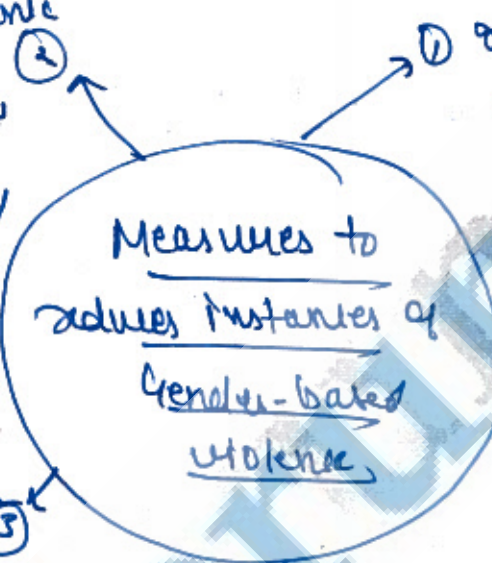 ②
①
Measures to
reduces instances of
Gender-based
violence,
3